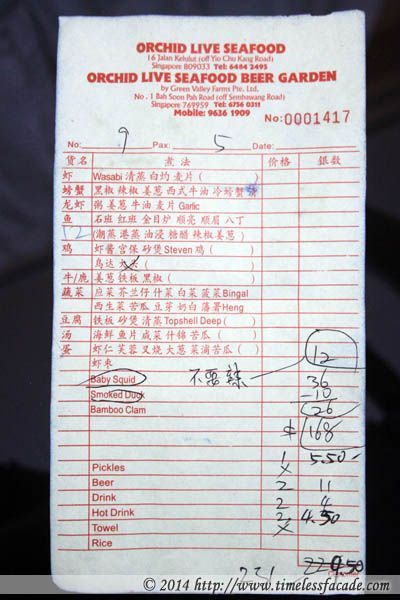 ORCHID LIVE SEAFOOD
16 Jalan Kelulut (off Yio Chu Kang Road)
Singapore 809033 Tel: 6484 2495
ORCHID LIVE SEAFOOD BEER GARDEN
by Green Valley Farms Pte. Ltd.
No. 1 Bah Soon Pah Road (off Sembawang Road)
Singapore 769959 Tel: 6756 0311
Mobile: 9636 1909
No: 0001417
No: 9 Pax: 5 Date:
货名 煮法 价格 银数
虾 Wasabi 清蒸 白灼 麦片 ( )
螃蟹 黑椒 辣椒 姜葱 西式牛油 冷螃蟹
龙虾 粥 姜葱 牛油 麦片 Garlic
鱼 石班 红班 金目炉 顺亮 顺眉 八丁
(潮蒸 港蒸 油浸 糖醋 辣椒 姜葱)
鸡 虾酱 宫保 砂煲 Steven 鸡 ( )
乌达
牛/鹿 姜葱 铁板 黑椒 ( )
蔬菜 应菜 芥兰仔 什菜 白菜 菠菜 Bingal
西生菜 苦瓜 豆芽 奶白 藩署 Heng
豆腐 铁板 砂煲 清蒸 Topshell Deep ( )
汤 海鲜 鱼片 咸菜 什锦 苦瓜 ( )
蛋 虾仁 芙蓉 叉烧 大葱 菜浦 苦瓜 ( )
虾枣 12
Baby Squid 不要辣 36
Smoked Duck -10
Bamboo Clam 26
168
1 5.50
Pickles
Beer 2 11
Drink 2 4
Hot Drink 2 4.50
Towel
Rice
231
© 2014 http://www.timelessfacade.com